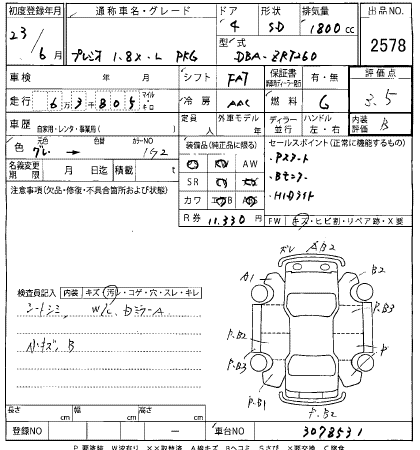 初度登録年月
通称車名・グレード
ドア 形状 排気量
出品NO.
23 / 6 月
プレミオ 1.8X-L PKG
4 SD 1800 cc
型式
DBA-ZRT260
2578
車検 年 月
シフト FAT
保証書 有・無
評価点
走行 6 3 千 8 0 5 マイル キロ
冷房 AAC
燃料 G
3.5
車歴 自家用・レンタ・事業用( )
定員 人
外車モデル 年
ディーラー 並行
ハンドル 左・右
内装評価 B
色 元色 グレー 色替 カラーNO 1G2
装備品(純正品に限る)
セールスポイント(正常に機能するもの)
・Pスタート
・Bモニター
・HIDライト
名義変更期限 月 日迄
積載 t
AW
SR
カワ
R券 11,330 円
注意事項(欠品・修復・不具合箇所および状態)
FW キズ・ヒビ割・リペア跡・X要
検査員記入 内装 キズ・汚レ・コゲ・穴・スレ・キレ
シートシミ W/L、ドミラーA
小キズ、B
ズレ AB2
A1
B2
P.B3
P.B2
P.B3
P
P.B1
P.B2
長さ cm 幅 cm 高さ cm
登録NO
車台NO 3078531
P.要塗装 W波有り XX取替済 A線キズ Bヘコミ Sさび X要交換 C腐食